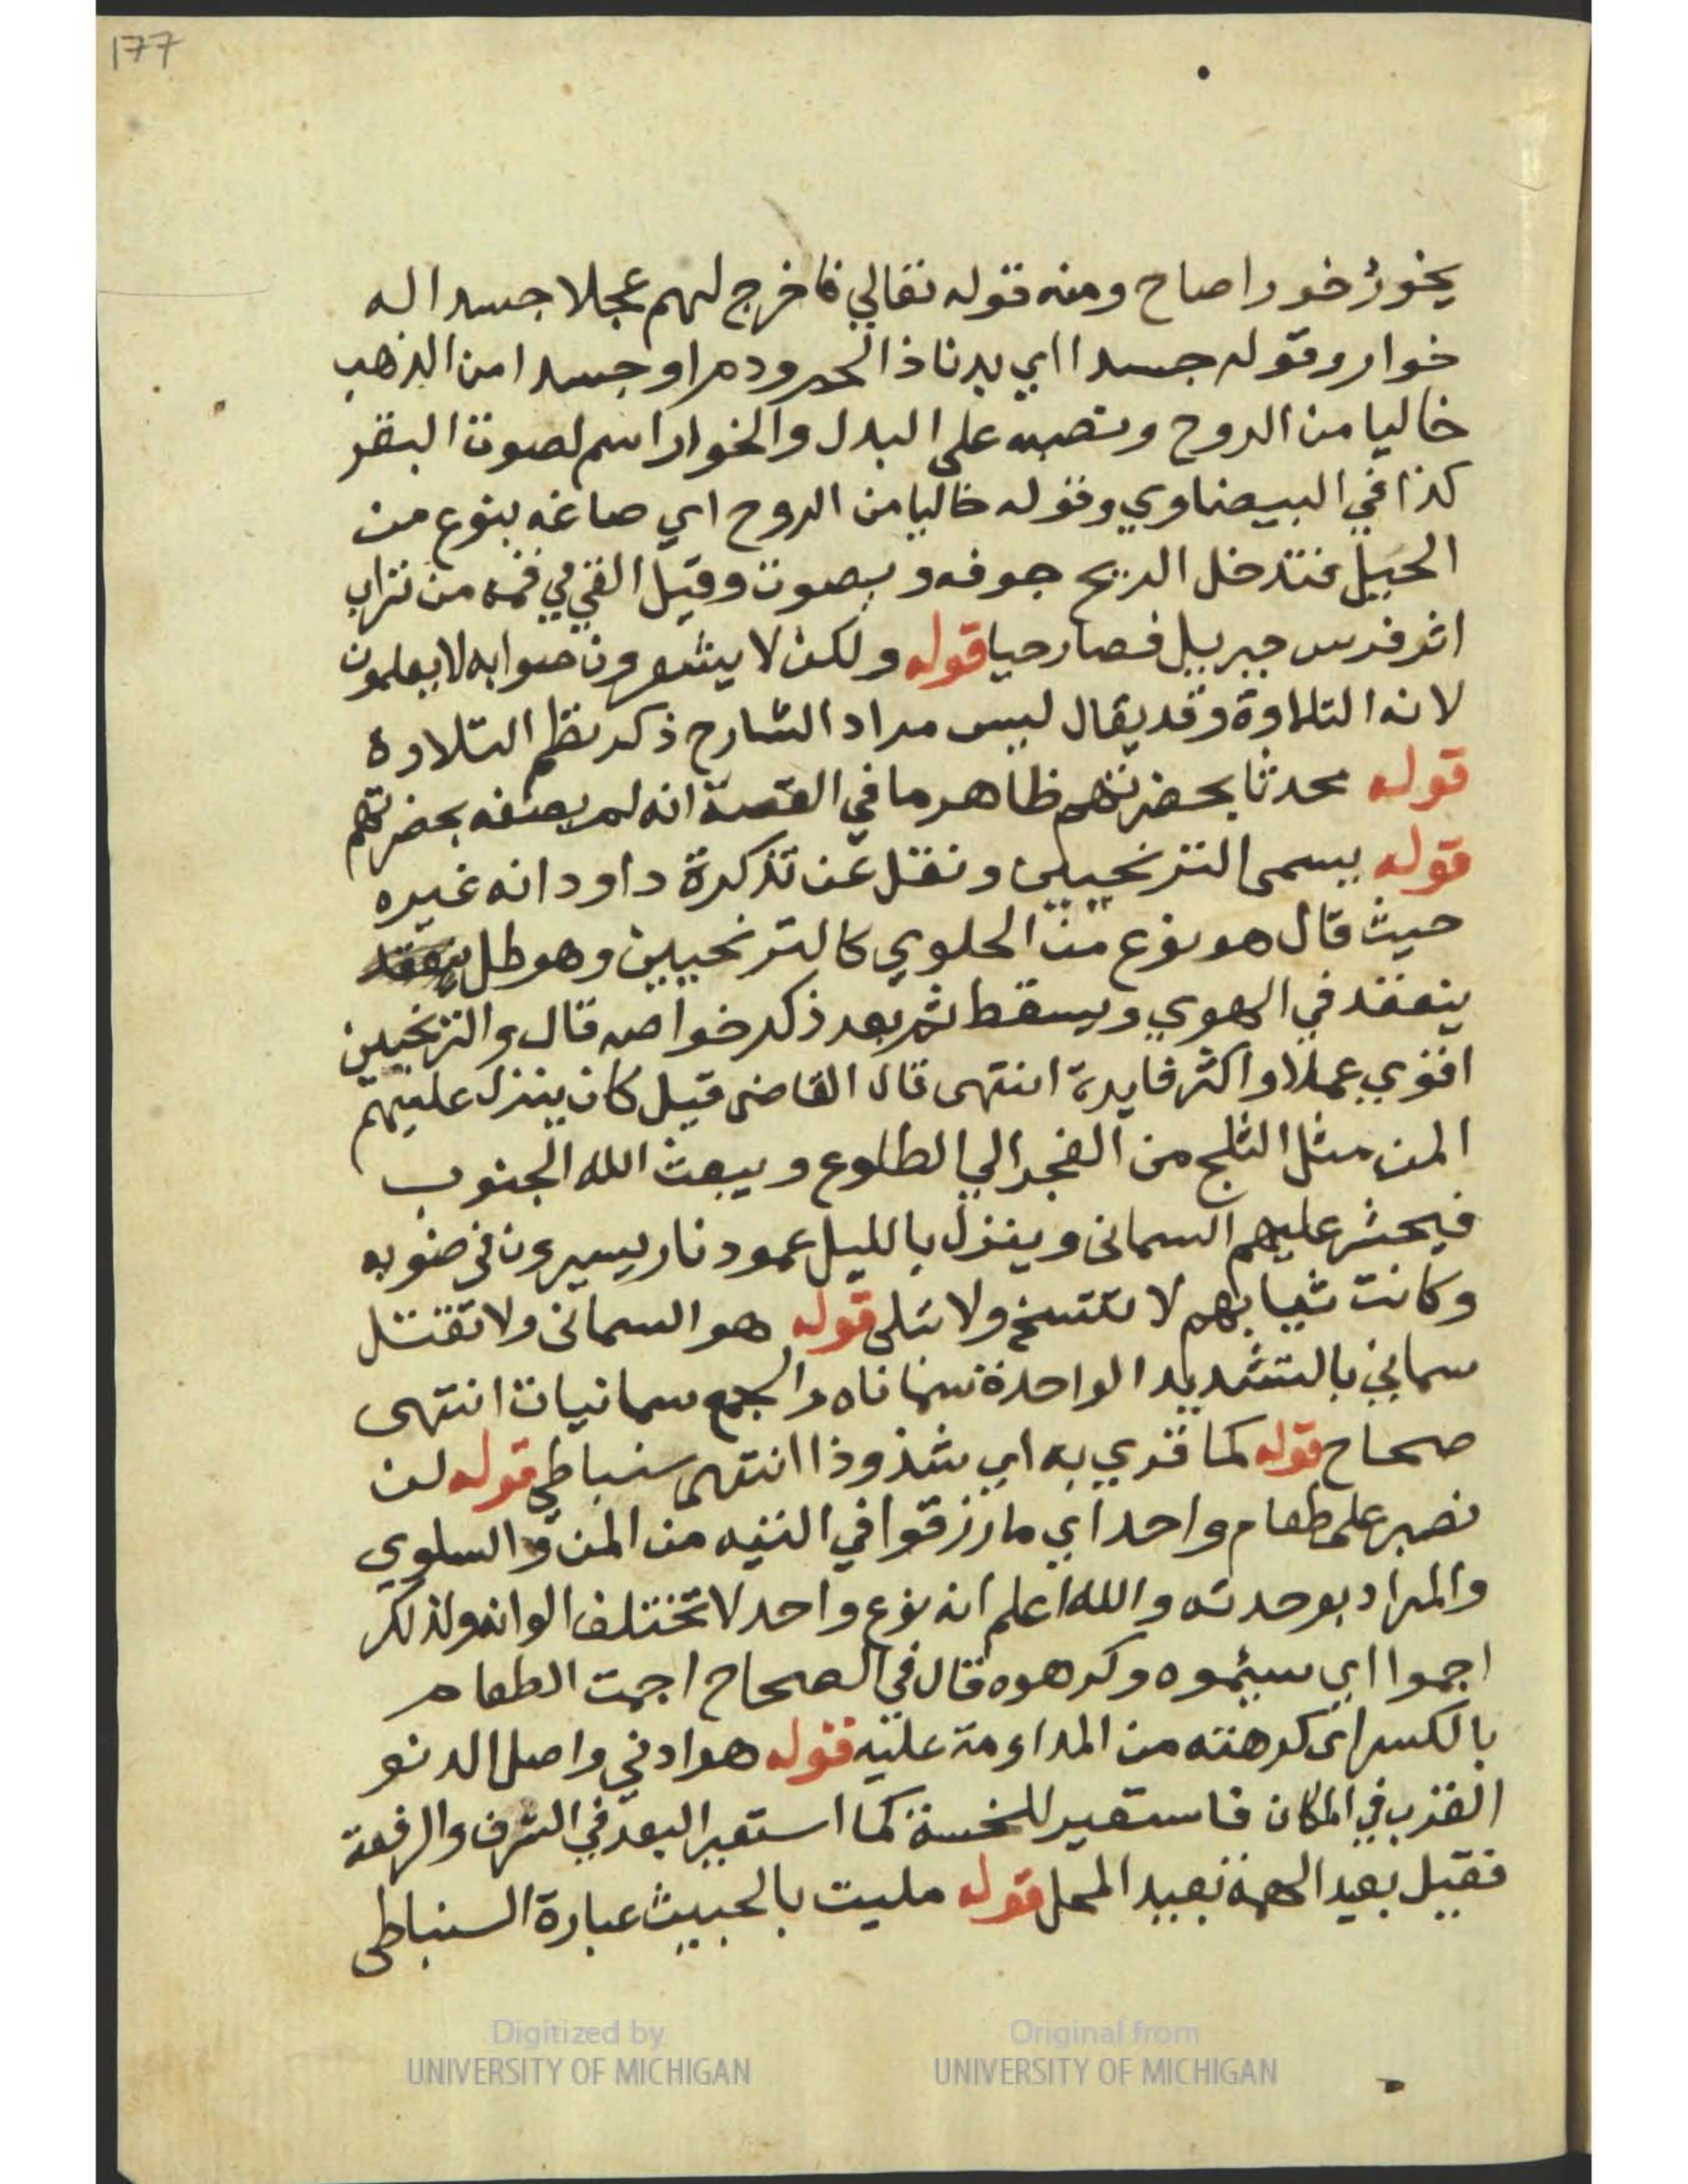 177
يخور خورا صاح ومنه قوله تعالي فاخرج لهم عجلا جسدا له
خوار وقوله جسدا اي بدنا ذا لحم ودم او جسدا من الذهب
خاليا من الروح ونصبه على البدل والخوار اسم لصوت البقر
كذا في البيضاوي وقوله خاليا من الروح اي صاغه بنوع من
الحيل فتدخل الريح جوفه و يصوت وقيل القي في فمه من تراب
اثر فرس جبريل فصار حيا قوله ولكن لا يشعرون صوابه لا يعلمون
لانه التلاوة وقد يقال ليس مراد الشارح ذكر نظم التلاوة
قوله محدثا بحضرتهم ظاهر ما في القصة انه لم يصنعه بحضرتهم
قوله يسمى الترنجبين ونقل عن تذكرة داود انه غيره
حيث قال هو نوع من الحلوي كالترنجبين وهو طل
ينعقد في الهوي ويسقط ثم بعد ذكر خواصه قال والترنجبين
اقوي عملا واكثر فايدة انتهى قال القاضى قيل كان ينزل عليهم
المن مثل الثلج من الفجر الي الطلوع ويبعث الله الجنوب
فيحشر عليهم السمانى وينزل بالليل عمود نار يسيرون في ضوءه
وكانت ثيابهم لا تتسخ ولا تبلى قوله هو السمانى ولا تقتل
سماني بالتشديد الواحدة سماناه والجمع سمانيات انتهى
صحاح قوله كما قري به اي شذوذا انتهى سنباطي قوله لن
نصبر على طعام واحد اي ما رزقوا في التيه من المن والسلوي
والمراد بوحدته والله اعلم انه نوع واحد لا تختلف الوانه ولذلك
اجموا اي سيموه وكرهوه قال في الصحاح اجمت الطعام
بالكسر اى كرهته من المداومة عليه قوله هو ادني واصل الدنو
القرب في المكان فاستعير للخسة كما استعير البعد في الشرف والرفعة
فقيل بعيد الهمة بعيد المحل قوله مليت بالحبيث عبارة السنباطى
Digitized by
UNIVERSITY OF MICHIGAN
Original from
UNIVERSITY OF MICHIGAN